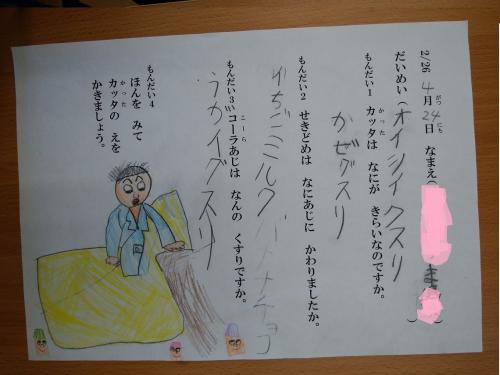 2/26 4月24日 なまえ(
だいめい(オイシイクスリ
もんだい1 カッタは なにが きらいなのですか。
かぜグスリ
もんだい2 せきどめは なにあじに かわりましたか。
いちごミルク バナナチョコ
もんだい3 コーラあじは なんの くすりですか。
うがイグスリ
もんだい4
ほんを みて
カッタの えを
かきましょう。